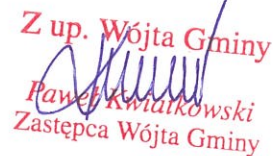 Z up. Wójta Gminy
Paweł Kwiatkowski
Zastępca Wójta Gminy